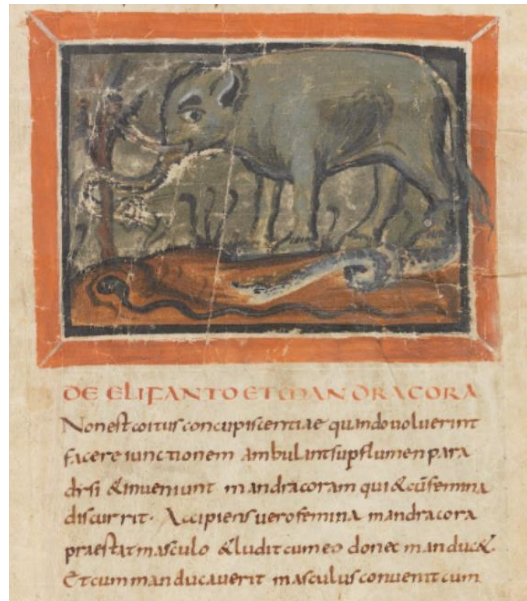 DE ELIFANTO ET MANDRACORA
Non est coitus concupiscentiae quando uoluerint
facere iunctionem ambulint sup flumen para
disi & inueniunt mandracoram qui & cū femina
discurrit. Accipiens uero femina mandracora
praestat masculo & ludit cum eo donec manduc&.
Et cum manducauerit masculus conuenit cum